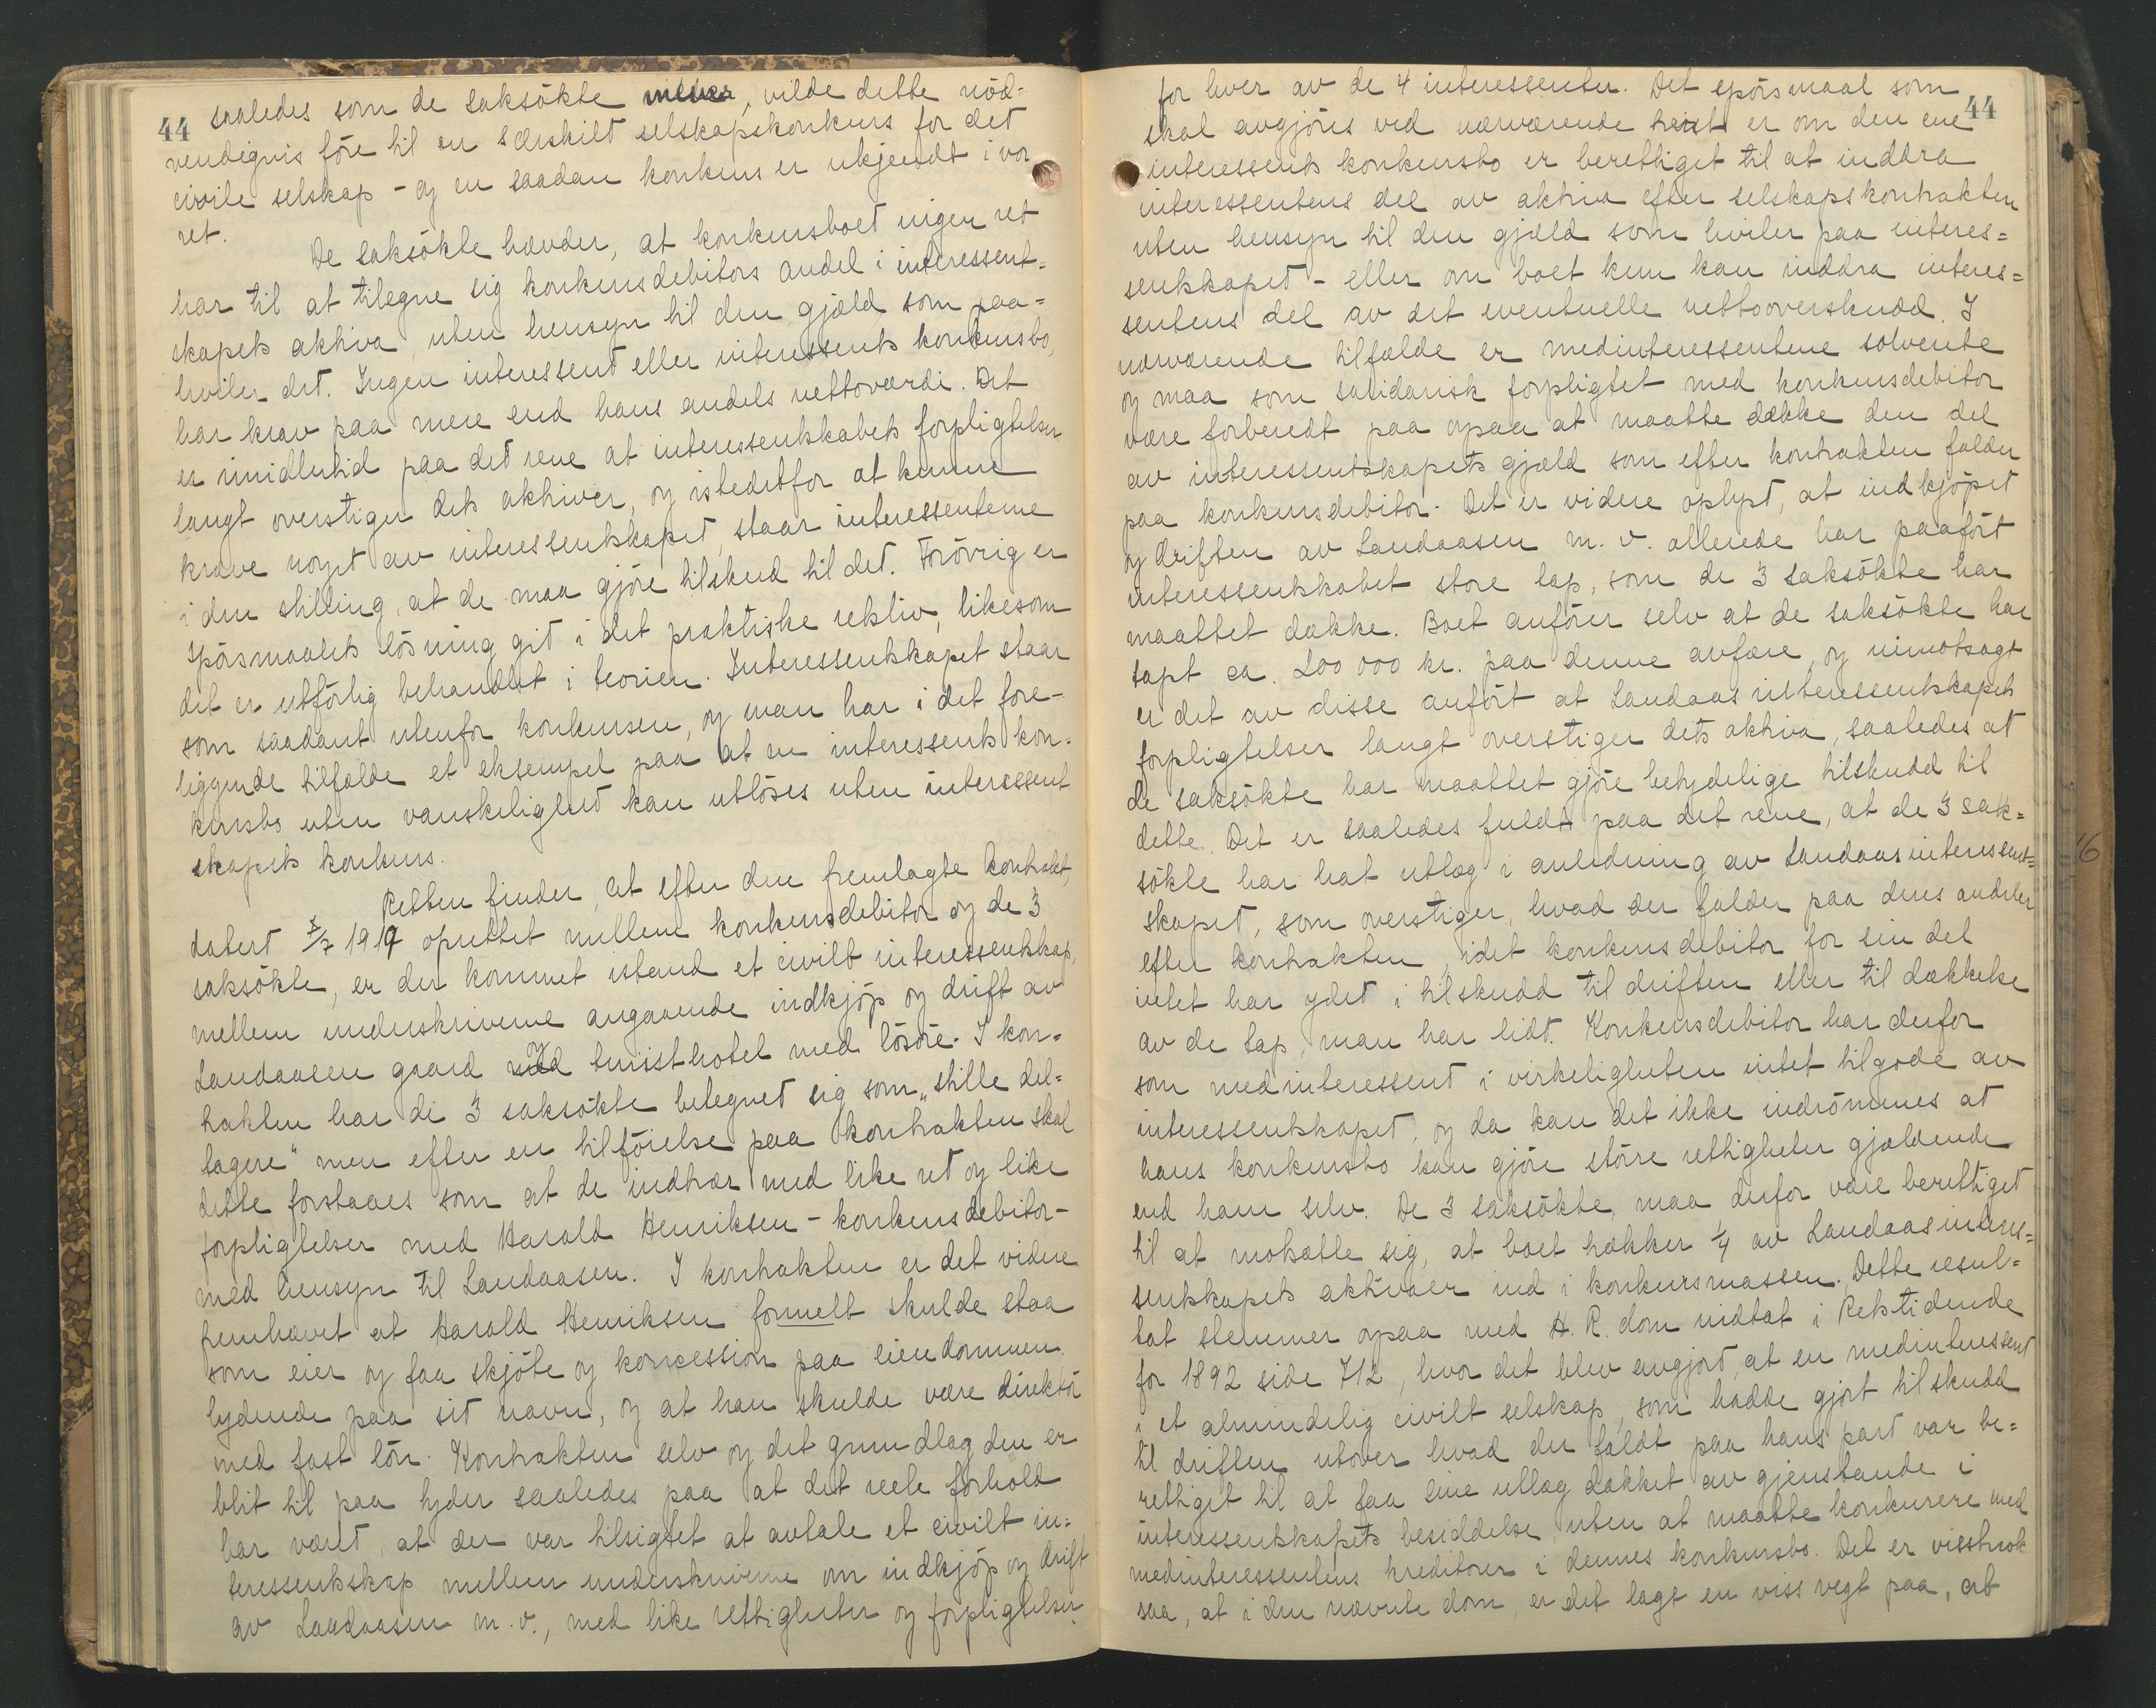 44
saaledes som de saksökte mener, vilde dette nöd=
vendigvis före til en særskilt selskapskonkurs for det
civile selskap - og en saadan konkurs er ukjendt i vor
ret.
De saksökte hævder, at konkursboet ingen ret
har til at tilegne sig konkursdebitors andel i interessent=
skapets aktiva, uten hensyn til den gjæld som paa=
hviler det. Ingen interessent eller interessents konkursbo,
har krav paa mere end hans andels nettoværdi. Det
er imidlertid paa det rene at interessentskabets forpligtelser
langt overstiger dets aktiver, og istedetfor at kunne
kræve noget av interessentskapet, staar interessenterne
i den stilling, at de maa gjöre tilskud til det. Forövrig er
spörsmaalets lösning git i det praktiske retsliv, likesom
det er utförlig behandlet i teorien. Interessentskapet staar
som saadant utenfor konkursen, og man har i det fore-
liggende tilfælde et eksempel paa at en interessents kon-
kursbo uten vanskelighet kan utlöses uten interessent
skapets konkurs.
Retten finder, at efter den fremlagte kontrakt,
datert 7/7 1919 oprettet mellem konkursdebitor og de 3
saksökte, er der kommet istand et civilt interessentskap,
mellem underskriverne angaaende indkjöp og drift av
Landaasen gaard med turisthotel med lösöre. I kon=
trakten har de 3 saksökte betegnet sig som "stille del=
tagere" men efter en tilföielse paa kontrakten skal
dette forstaaes som at de indtrær med like ret og like
forpligtelser med Harald Henriksen - konkursdebitor -
med hensyn til Landaasen. I kontrakten er det videre
fremhævet at Harald Henriksen formelt skulde staa
som eier og faa skjöte og koncession paa eiendommen
lydende paa sit navn, og at han skulde være direktör
med fast lön. Kontrakten selv og det grundlag den er
blit til paa tyder saaledes paa at det reele forhold
har været, at der var tilsigtet at avtale et civilt in=
teressentskap mellem underskriverne om indkjöp og drift
av Landaasen m.v., med like rettigheter og forpligtelser
44
for hver av de 4 interessenter. Det spörsmaal som
skal avgjöres ved nærværende tvist er om den ene
interessents konkursbo er berettiget til at inddra
interessentens del av aktiva efter selskapskontrakten
uten hensyn til den gjæld som hviler paa interes=
sentskapet - eller om boet kun kan inddra interes=
sentens del av det eventuelle nettooverskudd. I
nærværende tilfælde er medinteressentene solvente
og maa som solidarisk forpligtet med konkursdebitor
være forberedt paa opaa at maatte dække den del
av interessentskapets gjæld som efter kontrakten falder
paa konkursdebitor. Det er videre oplyst, at indkjöpet
og driften av Landaasen m.v. allerede har paafört
interessentskabet store tap, som de 3 saksökte har
maattet dække. Boet anförer selv at de saksökte har
tapt ca. 200 000 kr. paa denne avfære, og uimotsagt
er det av disse anfört at Landaas interessentskapets
forpligtelser langt overstiger dets aktiva, saaledes at
de saksökte har maattet gjöre betydelige tilskudd til
dette. Det er saaledes fuldt paa det rene, at de 3 sak=
sökte har hat utlæg i anledning av Landaasinteressent=
skapet, som overstiger, hvad der falder paa deres andeler
efter kontrakten, idet konkursdebitor for sin del
intet har ydet i tilskudd til driften eller til dækkelse
av de tap, man har lidt. Konkursdebitor har derfor
som medinteressent i virkeligheten intet tilgode av
interessentskapet, og da kan det ikke indrömmes at
hans konkursbo kan gjöre större rettigheter gjældende
end ham selv. De 3 saksökte, maa derfor være berettiget
til at motsætte sig, at boet trækker 1/4 av Landaasinteres=
sentskapets aktivaer ind i konkursmassen. Dette resul=
tat stemmer opaa med H. R. dom indtat i Retstidende
for 1892 side 712, hvor det blev avgjort, at en medinteressent
i et almindelig civilt selskap, som hadde gjort tilskudd
til driften utover hvad der faldt paa hans part var be=
rettiget til at faa sine utlæg dækket av gjenstande i
interessentskapets besiddelse uten at maatte konkurere med
medinteressentens kreditorer i dennes konkursbo. Det er visstnok
saa, at i den nævnte dom, er det lagt en viss vegt paa, at
16